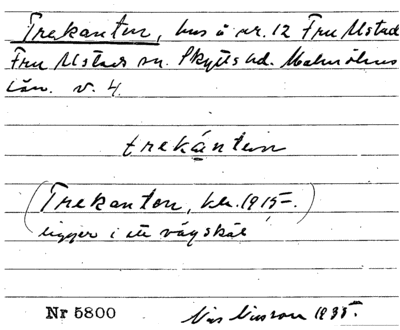 Trekanten, hus å nr. 12 Fru Alstad
Fru Alstads sn. Skytts hd. Malmöhus
län. v. 4.
trekánten
(Trekanten, bl. 1915.)
ligger i ett vägskäl
Nr 5800 Nils Nilsson 1935.